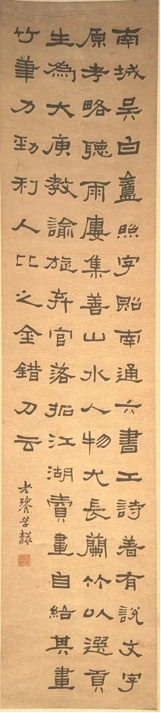 南城吴白盦照字貽南通六書工詩着有說文字
原考略聽雨廔集善山水人物尤長蘭竹以選貢
生為大庾教諭旋弃官落拓江湖賣畫自給其畫
竹筆力勁利人比之金錯刀云
老